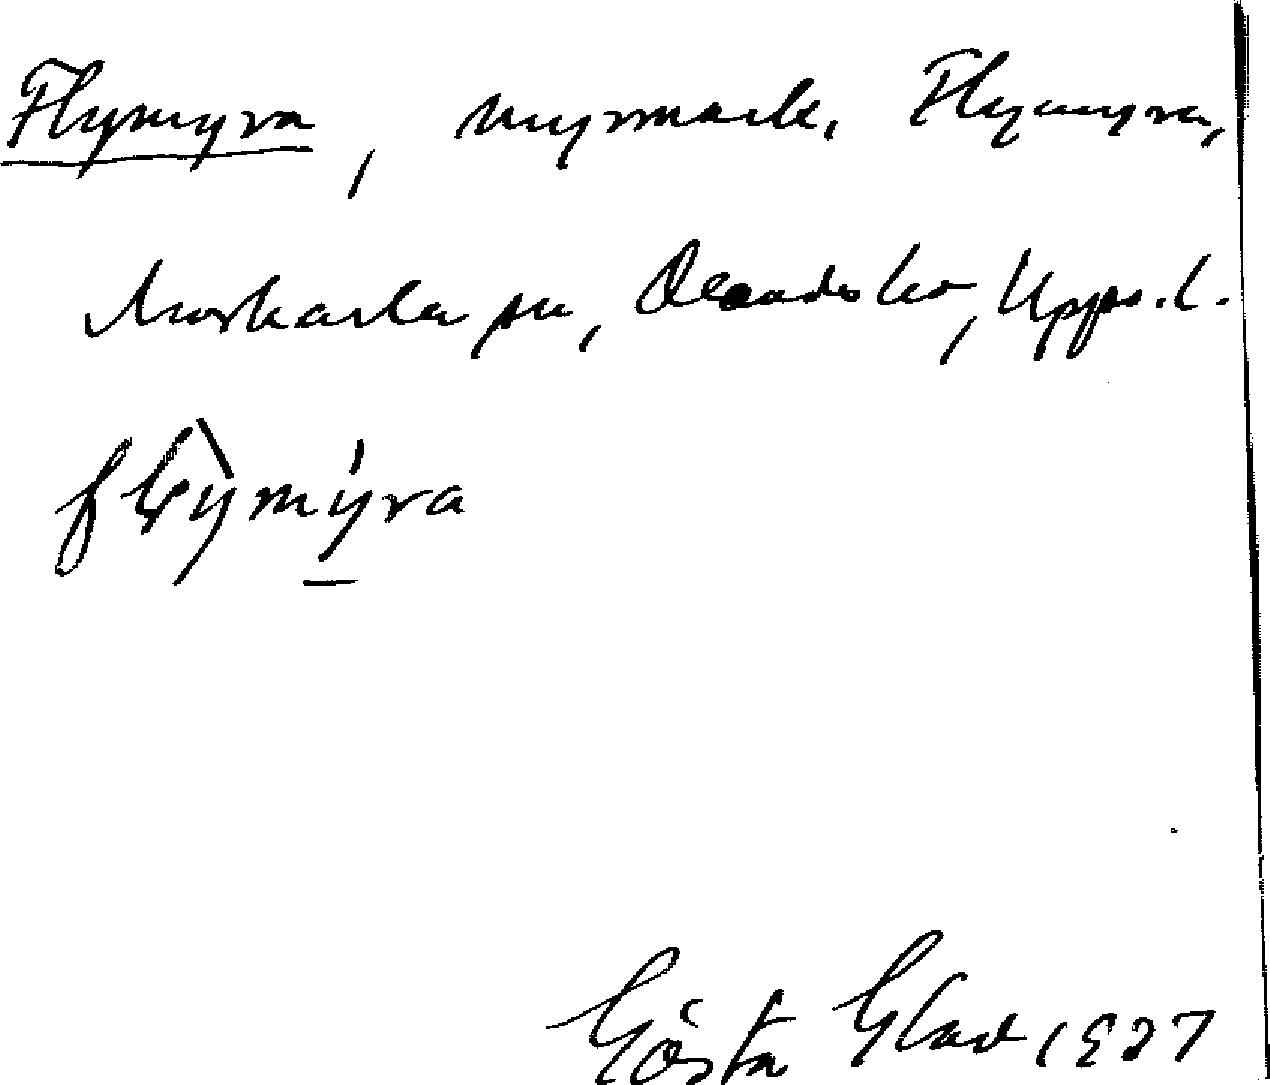 Flymyra, myrmark, Flymyra,
Morkarla sn, Olands hd, Upps. l.
flỳmýra
Gösta Glad 1927